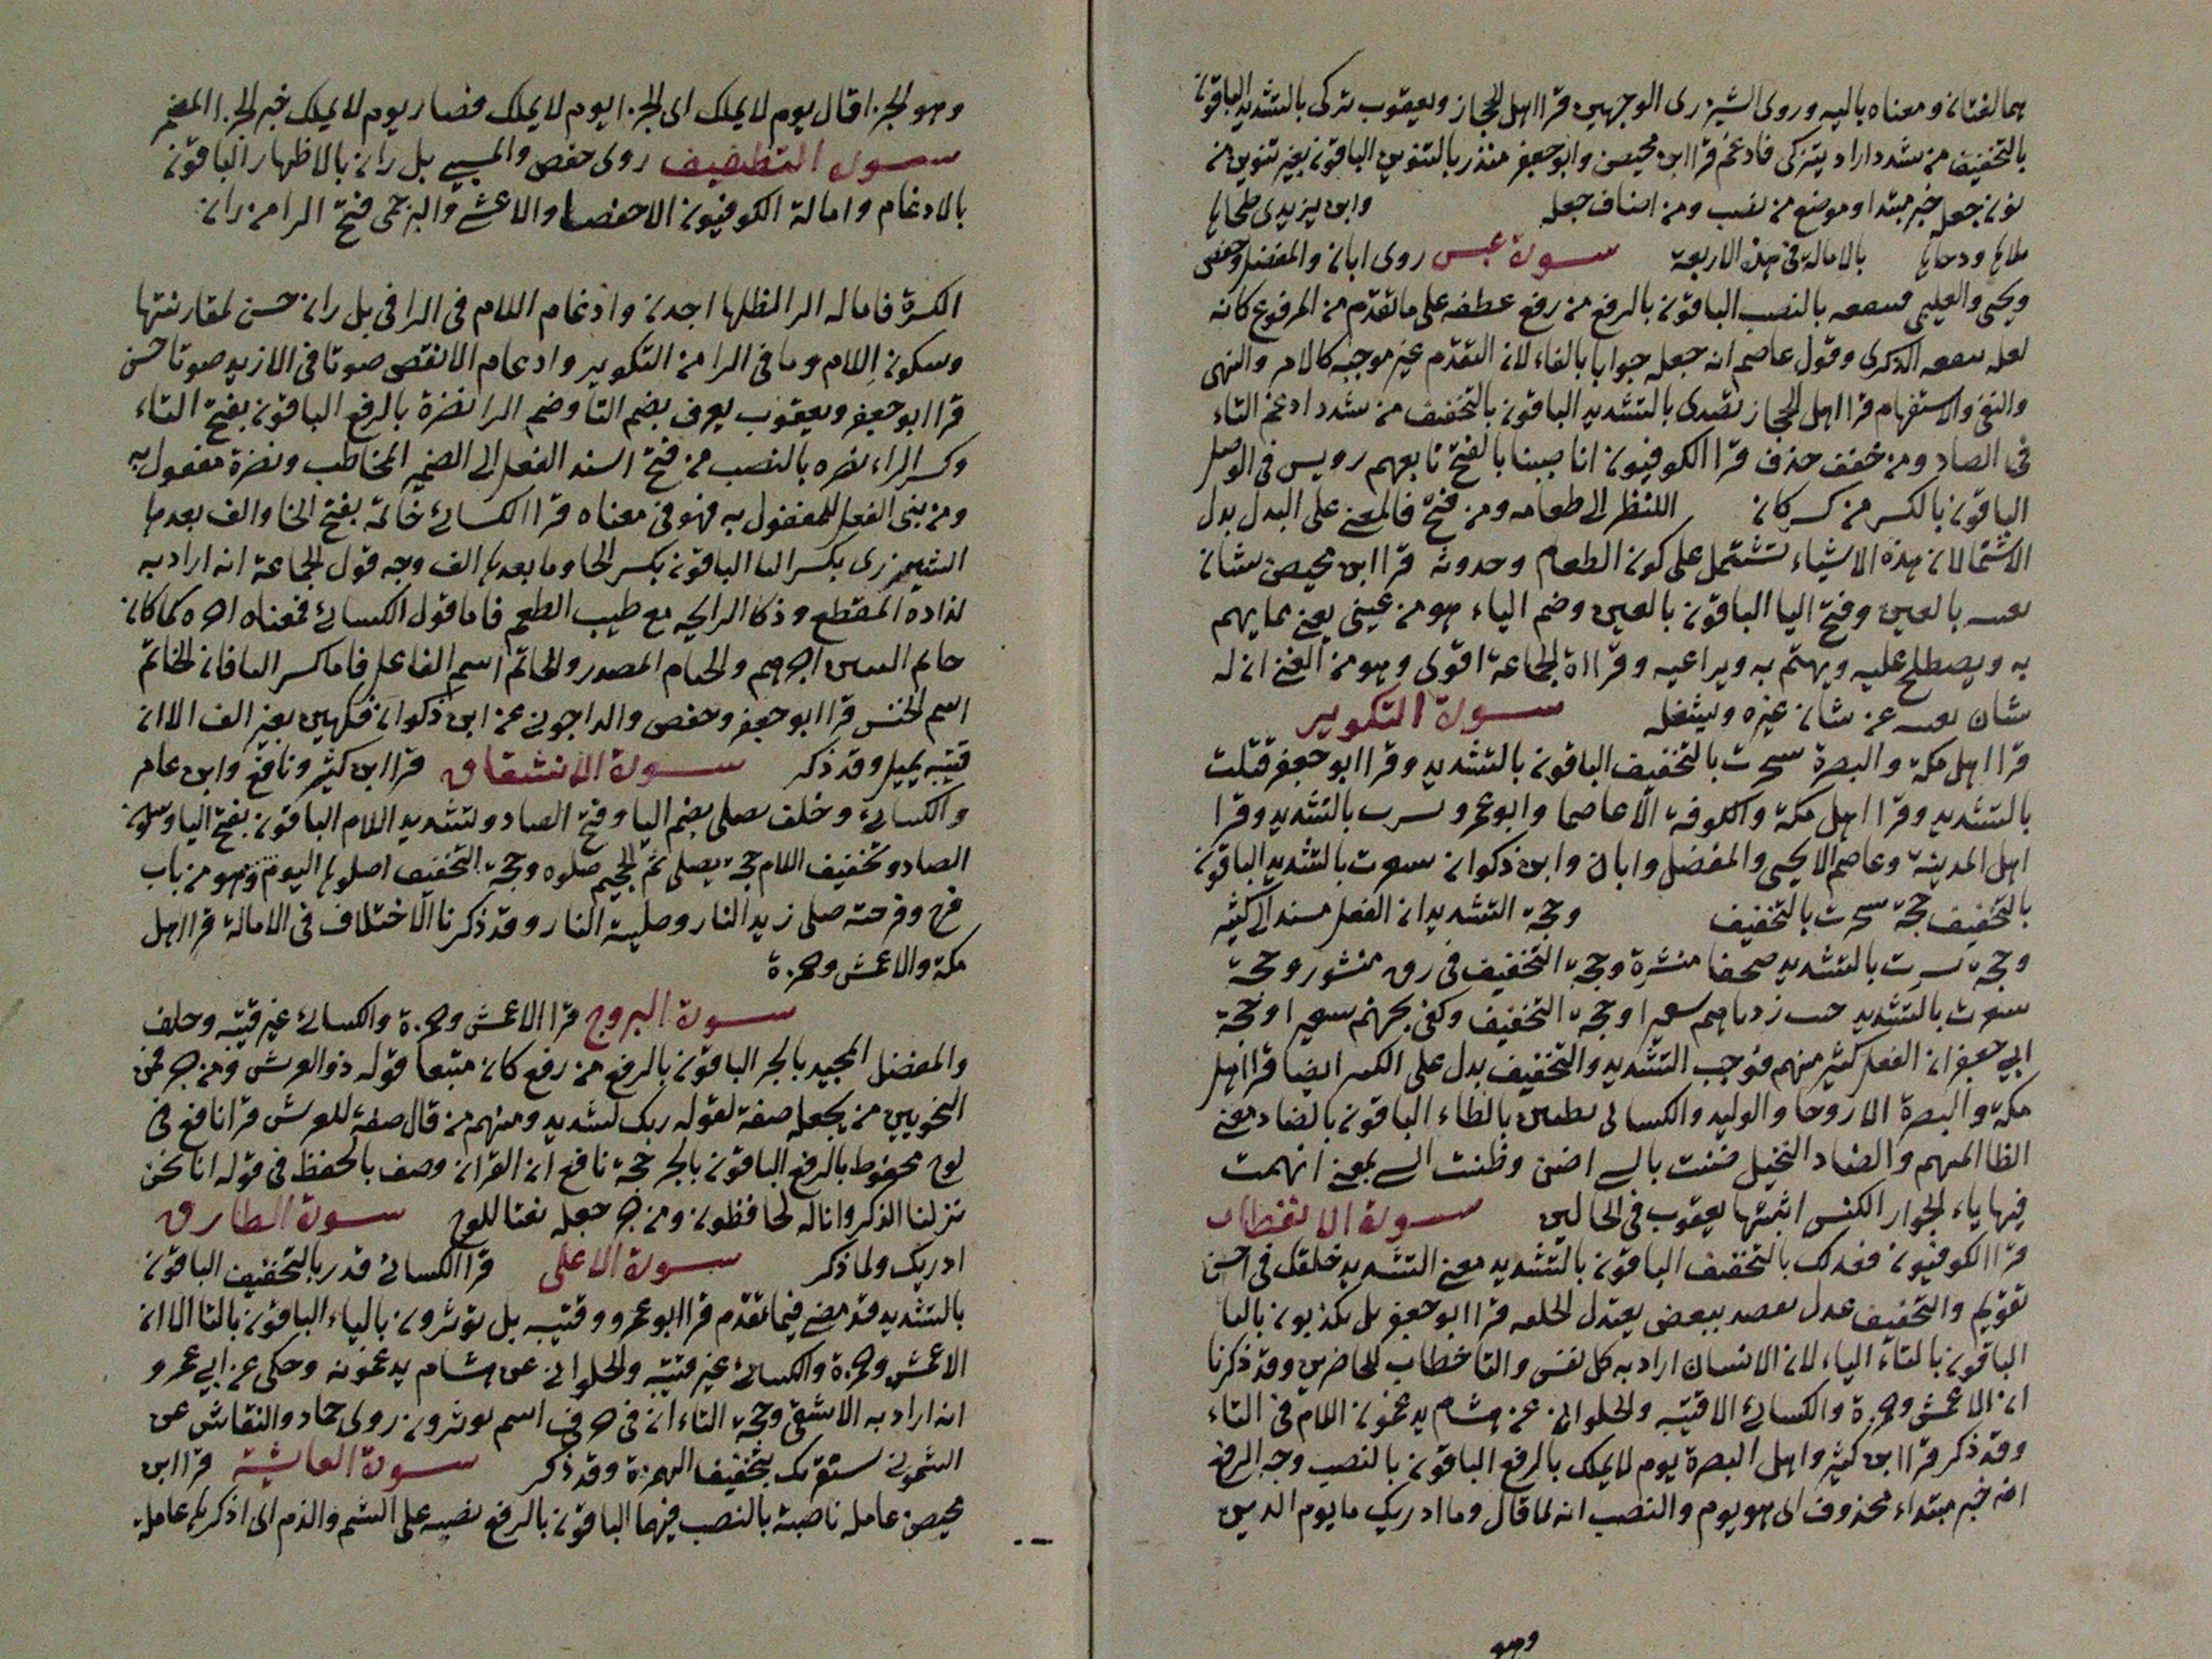 هما لغتان ومعناه باليه وروى الشيزرى الوجهين قرا اهل الحجاز ويعقوب تزكى بالتشديد الباقون
بالتخفيف من شدد اراد يتزكى فادغم قرا ابن محيصن وابو جعفر منذر بالتنوين الباقون بغير تنوين من
نون جعل خبر مبتدا وموضع من نصب ومن اضاف جعله وابن يزيدى طحاها
تلاها ودحاها بالامالة فى هذه الاربعة سورة عبس روى ابان والمفضل وحفص
ويحيى والعليمى فتنفعه بالنصب الباقون بالرفع من رفع عطفه على ما تقدم من المرفوع كانه
لعله تنفعه الذكرى وقول عاصم انه جعله جوابا بالفاء لان التقدم غير موجبه كالامر والنهى
والنفى والاستفهام قرا اهل الحجاز تصدى بالتشديد الباقون بالتخفيف من شدد ادغم التاء
فى الصاد ومن خفف حذف قرا الكوفيون انا صببنا بالفتح تابعهم رويس فى الوصل
الباقون بالكسر من كسر كان اللنظر الى طعامه ومن فتح فالمعنى على البدل بدل
الاشتمال لان هذه الاشياء تشتمل على كون الطعام وحدوثه قرا ابن محيصن شان
يعنيه بالعين وفتح اليا الباقون بالغين وضم الياء هو من عينى يعنى بما يهم
به ويصطلح عليه ويهتم به ويراعيه وقراة الجماعة اقوى وهو من الغنى ان له
شان يغنيه عن شان غيره ويشغله سورة التكوير
قرا اهل مكة والبصرة سجرت بالتخفيف الباقون بالتشديد وقرا ابو جعفر قتلت
بالتشديد وقرا اهل مكة والكوفة الا عاصما وابو عمرو نشرت بالتشديد وقرا
اهل المدينة وعاصم الا يحيى والمفضل وابان وابن ذكوان سعرت بالتشديد الباقون
بالتخفيف حجة سجرت بالتخفيف وحجة التشديد ان الفعل مسند الى كثير
وحجة نشرت بالتشديد صحفا منشرة وحجة التخفيف فى رق منشور وحجة
سعرت بالتشديد خبت زدناهم سعيرا وحجة التخفيف وكفى بجهنم سعيرا وحجة
ابي جعفر ان الفعل كثير منهم فوجب التشديد والتخفيف يدل على الكثير ايضا قرا اهل
مكة والبصرة الا روحا والوليد والكسائى بظنين بالظاء الباقون بالضاد معنى
الظا المتهم والضاد البخيل ضننت بالشى اضن وظننت الشى بمعنى اتهمت
فيها ياء الجوار الكنس اثبتها يعقوب فى الحالين سورة الانفطار
قرا الكوفيون فعدلك بالتخفيف الباقون بالتشديد معنى التشديد خلقك فى احسن
تقويم والتخفيف عدل بعضه ببعض يعتدل الخلقه قرا ابو جعفر بل يكذبون باليا
الباقون بالتاء الياء لان الانسان اراد به كل نفس والتا خطاب للحاضرين وقد ذكرنا
ان الاعمش وحمزة والكسائى الا قتيبه والحلوانى عن هشام يدغمون اللام فى التاء
وقد ذكر قرا ابن كثير واهل البصرة يوم لا يملك بالرفع الباقون بالنصب وجه الرفع
انه خبر مبتداء محذوف اى هو يوم والنصب انه لما قال وما ادريك ما يوم الدين
وهو
وهو الجزا قال يوم لا يملك اى الجزا يوم لا يملك فصار يوم لا يملك خبر الجزا المضمر
سورة التطفيف روى حفص والمسيبى بل ران بالاظهار الباقون
بالادغام وامالة الكوفيون الا حفصا والاعشى والبرجمى فتح الرا من ران
الكسرة فاماله الرا لتظلها اجدى وادغام اللام فى الرا فى بل ران حسن لمقاربتها
وسكون اللام وما فى الرا من التكوير وادغام الانقص صوتا فى الازيد صوتا حسن
قرا ابو جعفر ويعقوب يعرف بضم التا وضم الرا نضرة بالرفع الباقون بفتح التاء
وكسر الراء نضره بالنصب من فتح اسند الفعل الى الضمير المخاطب ونضرة مفعول به
ومن بنى الفعل للمفعول به فهو فى معناه قرا الكسائى خاتمه بفتح الخا والف بعدها
الشيزرى بكسر التا الباقون بكسر الخا وما بعدها الف وجه قول الجماعة انه اراد به
لذاذه المقطع وذكا الرايحه مع طيب الطعم فاما قول الكسائى فمعناه اخره كما كان
خاتم النبيين اخرهم والختام المصدر والخاتم اسم الفاعل فاما كسر التا فان الخاتم
اسم الجنس قرا ابو جعفر وحفص والداجونى عن ابن ذكوان فكهين بغير الف الا ان
قتيبه يميل وقد ذكر سورة الانشقاق قرا ابن كثير ونافع وابن عامر
والكسائى وخلف يصلى بضم اليا وفتح الصاد وتشديد اللام الباقون بفتح اليا وسكون
الصاد وتخفيف اللام حجة يصلى ثم الجحيم صلوه وحجة التخفيف اصلوها اليوم وهو من باب
فرح وفرحته صلى زيد النار وصليته النار وقد ذكرنا الاختلاف فى الامالة قرا اهل
مكة والاعمش وحمزة
سورة البروج قرا الاعمش وحمزة والكسائى غير قتيبه وخلف
والمفضل المجيد بالجر الباقون بالرفع من رفع كان متبعا قوله ذو العرش ومن جر فمن
النحويين من يجعله صفة لقوله ربك لشديد ومنهم من قال صفة للعرش قرا نافع فى
لوح محفوظ بالرفع الباقون بالجر حجة نافع ان القران وصف بالحفظ فى قوله انا نحن
نزلنا الذكر وانا له لحافظون ومن جر جعله نعتا للوح سورة الطارق
ادريك ولما ذكر سورة الاعلى قرا الكسائى قدر بالتخفيف الباقون
بالتشديد قد مضى فيما تقدم قرا ابو عمرو وقتيبه بل توثرون بالياء الباقون بالتا الا ان
الاعمش وحمزة والكسائى غير قتيبة والحلوانى عن هشام يدغمونه وحكى عن ابي عمرو
انه اراد به الاشقى وحجة التاء ان فى حرف اسم توثرون روى حماد والنقاش عن
الشمونى سنقريك بتخفيف الهمزة وقد ذكر سورة الغاشية قرا ابن
محيصن عاملة ناصبة بالنصب فيهما الباقون بالرفع نصبه على الشتم والذم اى اذكرها عاملة